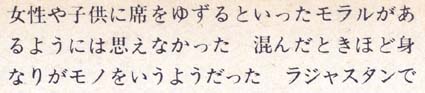 女性や子供に席をゆずるといったモラルがあ
るようには思えなかった　混んだときほど身
なりがモノをいうようだった　ラジャスタンで